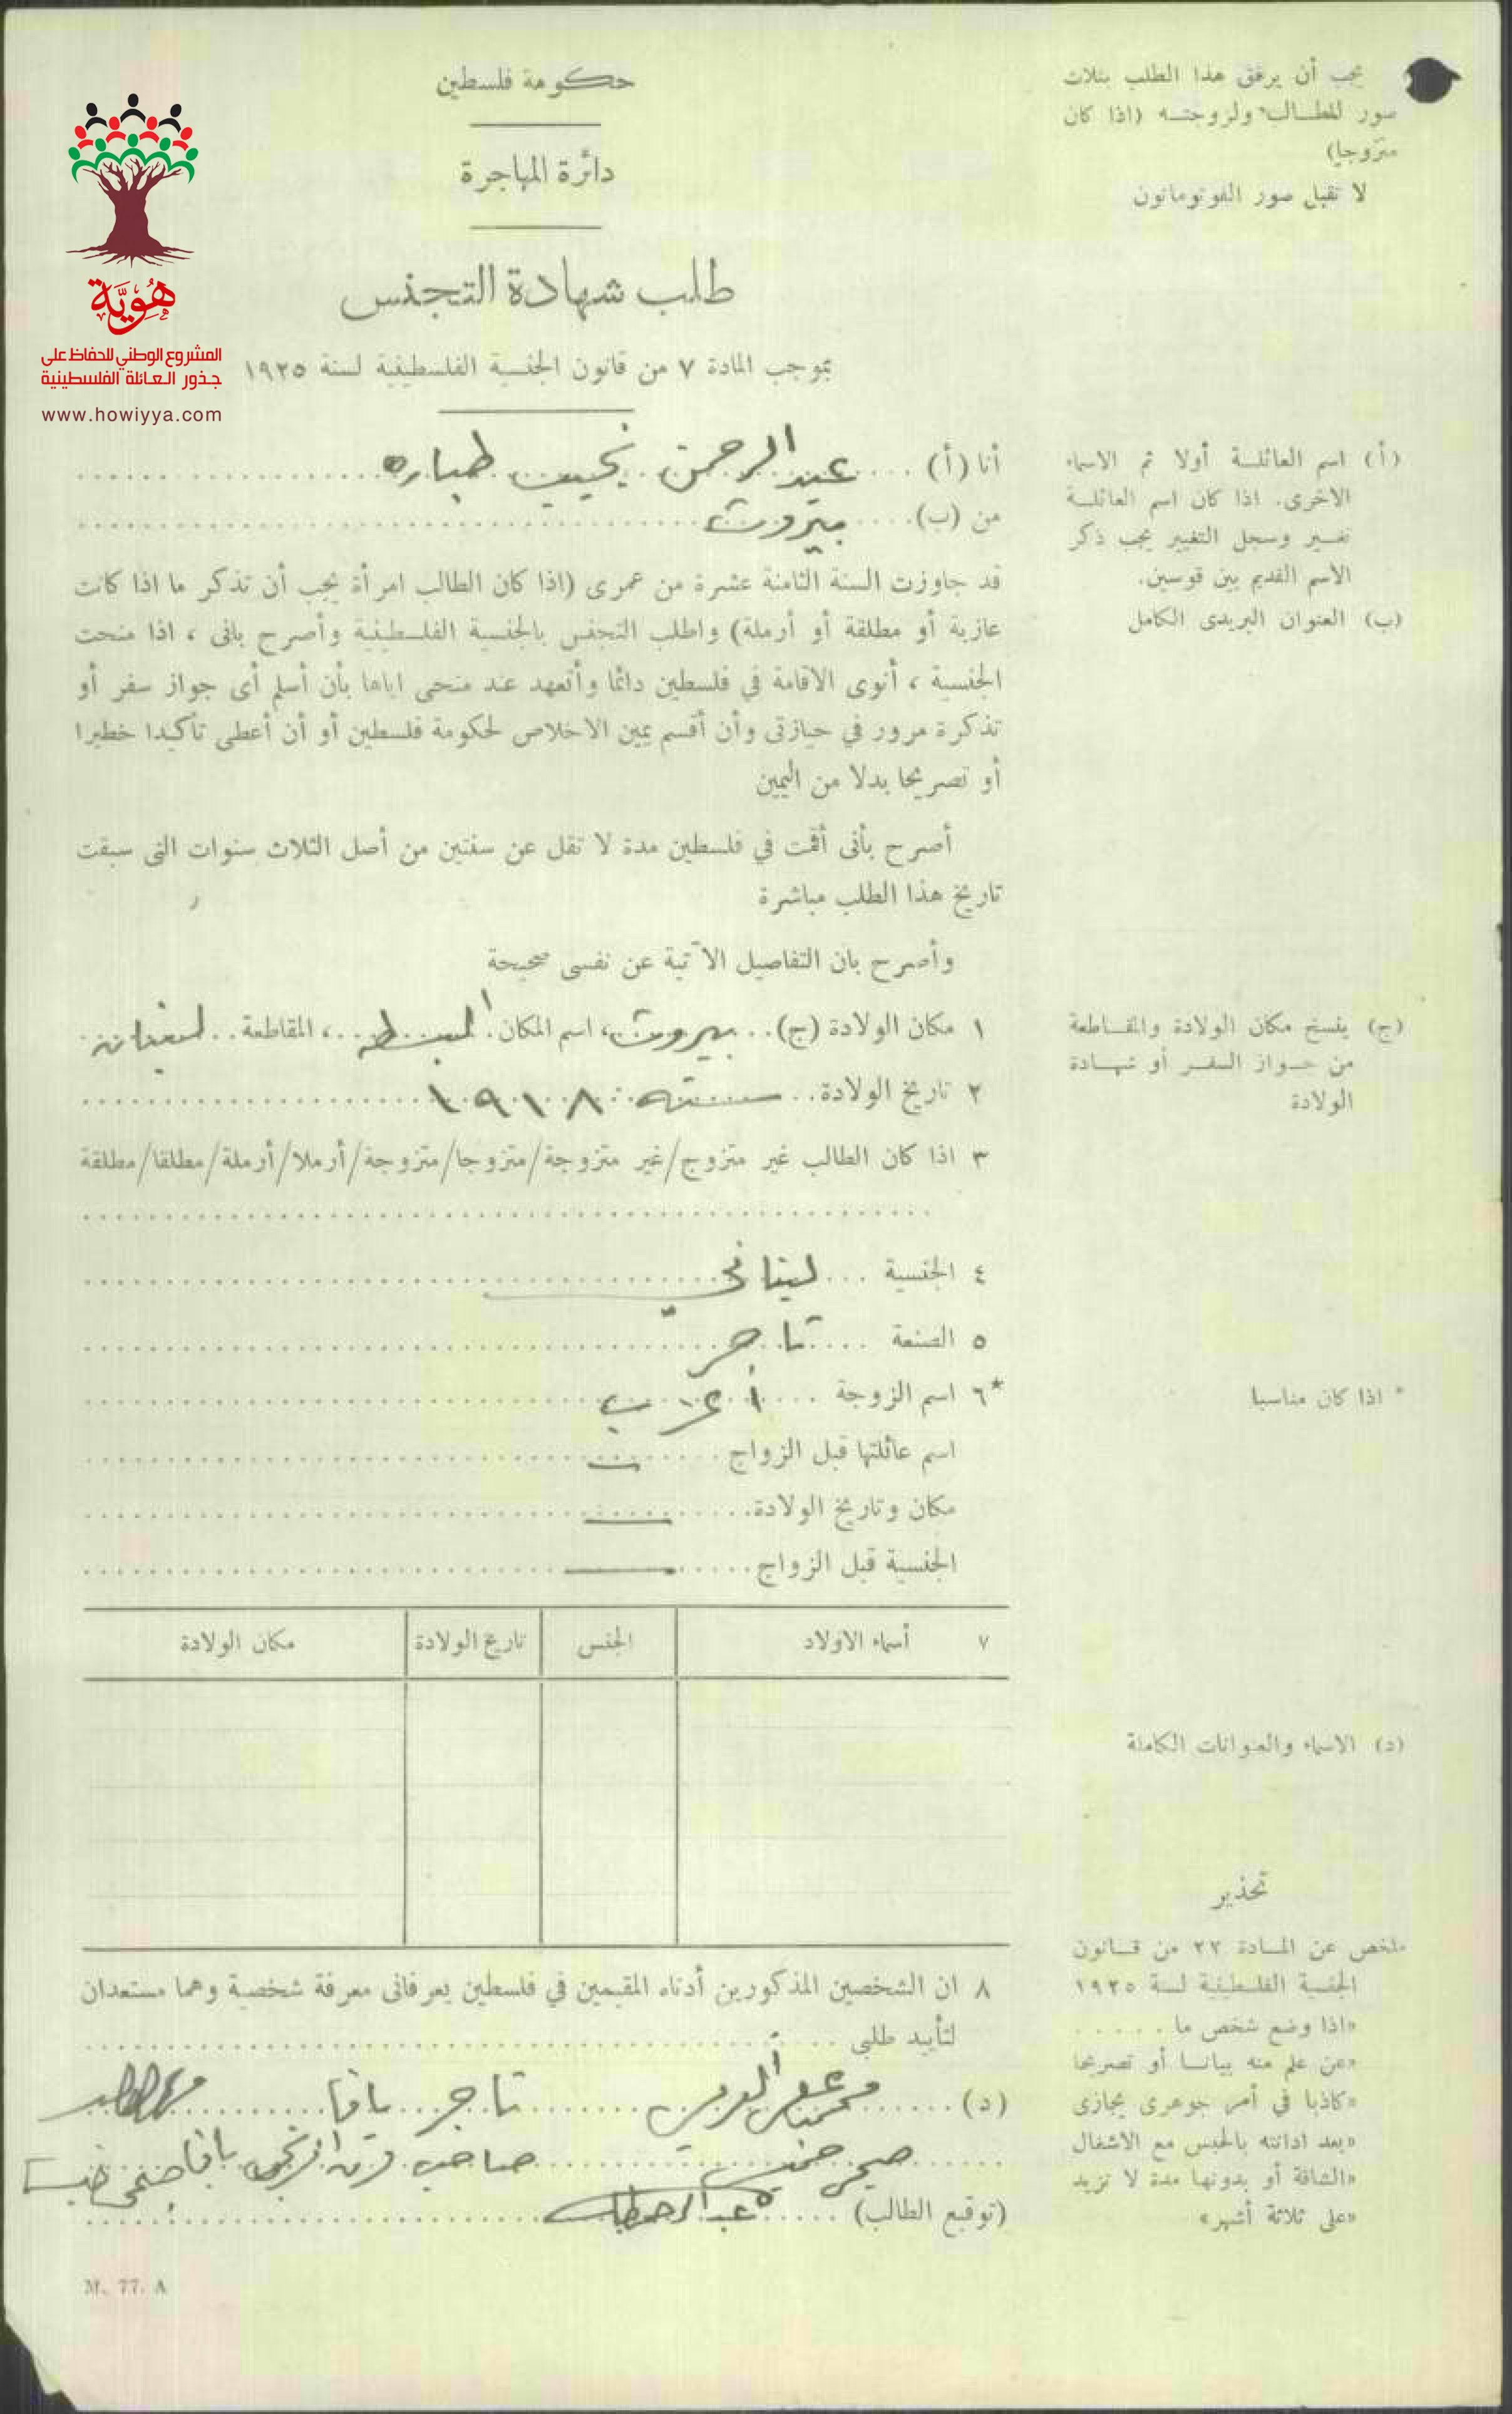 حكومة فلسطين
دائرة المهاجرة
طلب شهادة التجنس
بموجب المادة ٧ من قانون الجنسية الفلسطينية لسنة ١٩٢٥
يجب أن يرفق هذا الطلب بثلاث
صور للطالب ولزوجته (اذا كان
متزوجا)
لا تقبل صور الفوتوماتون
هُوِيَّة
المشروع الوطني للحفاظ على
جذور العائلة الفلسطينية
www.howiyya.com
أنا (أ) .... عبد الرحمن نجيب طباره
من (ب) .... بيروت
(أ) اسم العائلة أولا ثم الاسماء
الاخرى. اذا كان اسم العائلة
تغير وسجل التغيير يجب ذكر
الاسم القديم بين قوسين.
(ب) العنوان البريدى الكامل
قد جاوزت السنة الثامنة عشرة من عمرى (اذا كان الطالب امرأة يجب أن تذكر ما اذا كانت
عازبة أو مطلقة أو أرملة) واطلب التجنس بالجنسية الفلسطينية وأصرح بانى ، اذا منحت
الجنسية ، أنوى الاقامة في فلسطين دائما وأتعهد عند منحى اياها بأن أسلم أى جواز سفر أو
تذكرة مرور في حيازتى وأن أقسم يمين الاخلاص لحكومة فلسطين أو أن أعطى تأكيدا خطيرا
أو تصريحا بدلا من اليمين
أصرح بأنى أقمت في فلسطين مدة لا تقل عن سنتين من أصل الثلاث سنوات التى سبقت
تاريخ هذا الطلب مباشرة
وأصرح بان التفاصيل الآتية عن نفسى صحيحة
١ مكان الولادة (ج) .. بيروت ، اسم المكان . البسطه ، المقاطعة .. لبنان
(ج) ينسخ مكان الولادة والمقاطعة
من جواز السفر أو شهادة
الولادة
٢ تاريخ الولادة .. سنة ١٩١٨
٣ اذا كان الطالب غير متزوج/غير متزوجة/متزوجا/متزوجة/أرملا/أرملة/مطلقا/مطلقة
٤ الجنسية ... لبناني
٥ الصنعة .... تاجر
*٦ اسم الزوجة .... أعزب
* اذا كان مناسبا
اسم عائلتها قبل الزواج
مكان وتاريخ الولادة
الجنسية قبل الزواج
٧ أسماء الاولاد الجنس تاريخ الولادة مكان الولادة
(د) الاسماء والعنوانات الكاملة
تحذير
ملخص عن المادة ٢٢ من قانون
الجنسية الفلسطينية لسنة ١٩٢٥
«اذا وضع شخص ما .....
«عن علم منه بيانا أو تصريحا
«كاذبا في أمر جوهرى يجازى
«بعد ادانته بالحبس مع الاشغال
«الشاقة أو بدونها مدة لا تزيد
«على ثلاثة أشهر»
٨ ان الشخصين المذكورين أدناه المقيمين في فلسطين يعرفانى معرفة شخصية وهما مستعدان
لتأييد طلبى
(د) تاجر يافا
صبحي صاحب فرن يافا
(توقيع الطالب) عبد الرحمن طباره
M. 77. A